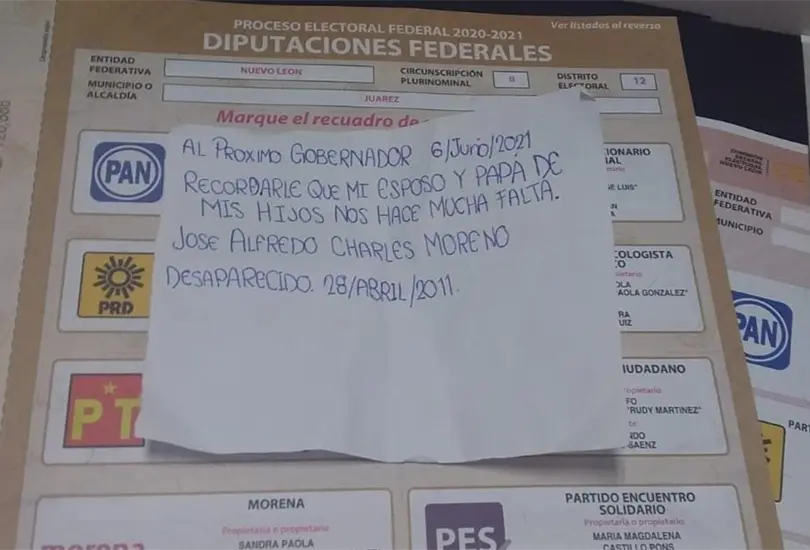 PROCESO ELECTORAL FEDERAL 2020-2021
Ver listados al reverso
DIPUTACIONES FEDERALES
ENTIDAD FEDERATIVA
NUEVO LEON
CIRCUNSCRIPCIÓN PLURINOMINAL
II
DISTRITO ELECTORAL
12
MUNICIPIO O ALCALDÍA
JUAREZ
Marque el recuadro de
AL PROXIMO GOBERNADOR 6/JUNIO/2021
RECORDARLE QUE MI ESPOSO Y PAPÁ DE
MIS HIJOS NOS HACE MUCHA FALTA.
JOSE ALFREDO CHARLES MORENO
DESAPARECIDO. 28/ABRIL/2011.
PAN
PRD
PT
CIONARIO
E LUIS"
COLOGISTA
CO
OLA
AOLA GONZALEZ"
RA
UIZ
IUDADANO
"RUDY MARTINEZ"
NDO
SAENZ
MORENA
Propietaria o propietario
SANDRA PAOLA
morena
PARTIDO ENCUENTRO
SOLIDARIO
Propietaria o propietario
MARIA MAGDALENA
CASTILLO PONS
PES
ENTIDAD
FEDERATIVA
MUNICIPIO
PAN
PAR